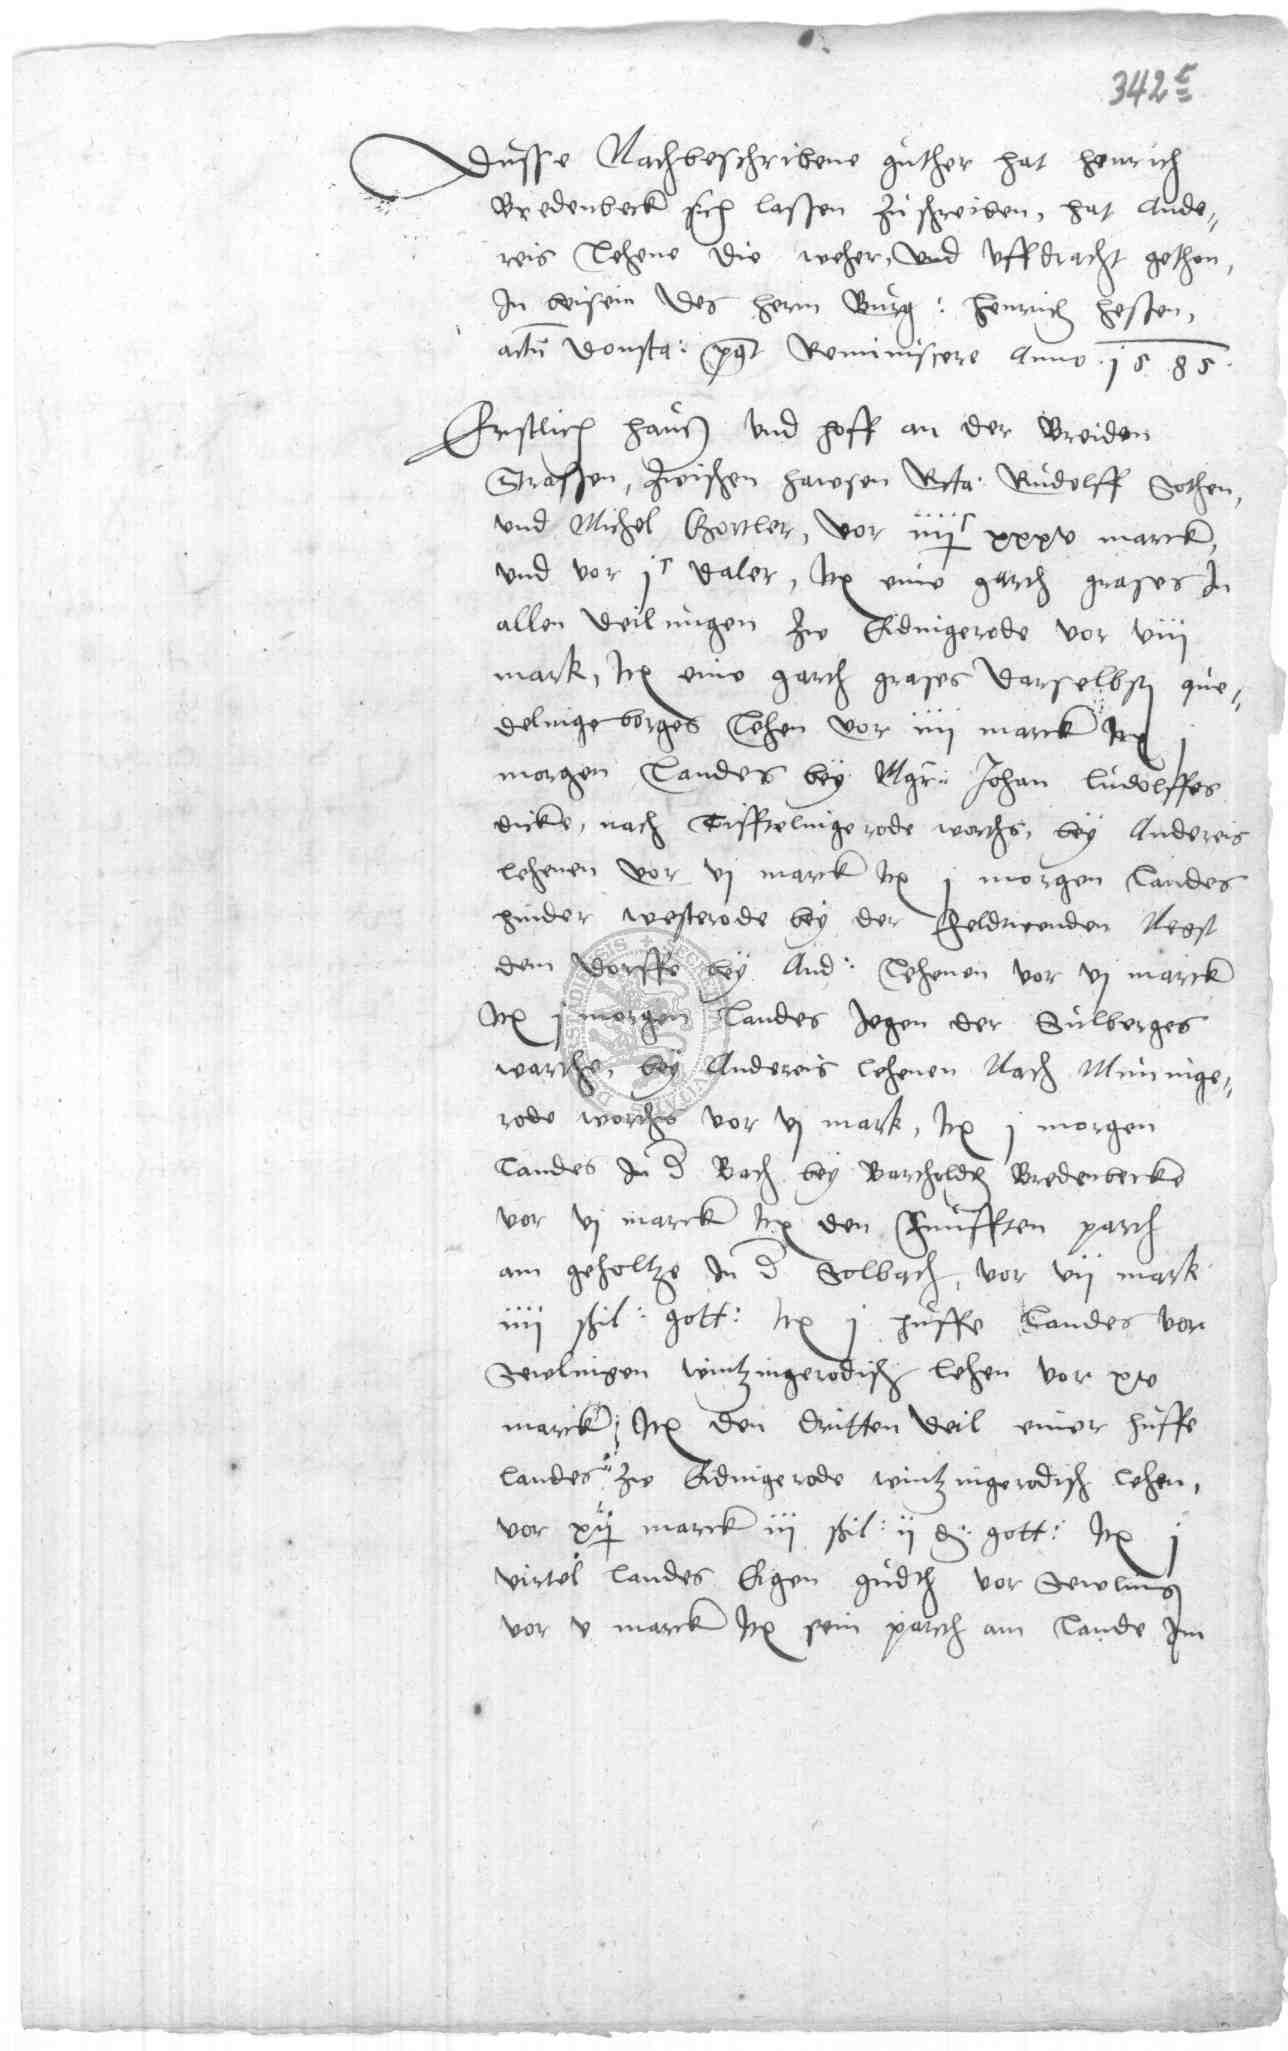 342 c
Dusse Nachbeschribene guther hat Henrich
Bredenbeck sich lassen zuschreiben, hat Ande-
reis Lehene die weher, und uffdracht gethon,
In beisein des herrn Burg: Henrich Hessen,
actu Donsta: post Reminiscere Anno 1585.
Erstlich hauß und hoff an der Breiden
Strassen, zwischen hawsen Rudolff Sothen,
und Michel Gortler, vor iiijc xxxv marck,
und vor jc daler, Itẽ eine garth grases In
allen deilungen zw Esdingerode vor viij
mark, Itẽ eine garth grases darselbst que-
delingeborges Lehen vor iiij marck Itẽ j
morgen Landes bey Mgr: Johan Ludolffes
dicke, nach Tifftelingerode worths, bey Andereis
lehenen vor vj marck Itẽ j morgen Landes
hinder westerode bey der Heldtwenden Negst
dem dorffe bey And: Lehenen vor vj marck
Itẽ j morgen Landes Jegen der Sulberges
warthe, bey Andereis lehenen Nach Mininge-
rode worths vor vj mark, Itẽ j morgen
Landes In d Bach bey Bartholdt Bredenbecke
vor vj marck Itẽ den funfften parth
am geholtze In d Solbach, vor vij mark
iiij schil: gott: Itẽ j huffe Landes vor
Sewlingen wintzingerodisch lehen vor xv
marck, Itẽ den dritten deil einer huffe
landes zw Esdingerode wintzingerodisch lehen,
vor marck iij schil: ij d: gott: Itẽ j
virtel landes Eigen gudth vor Sewling
vor v marck Itẽ sein parth am Lande Im